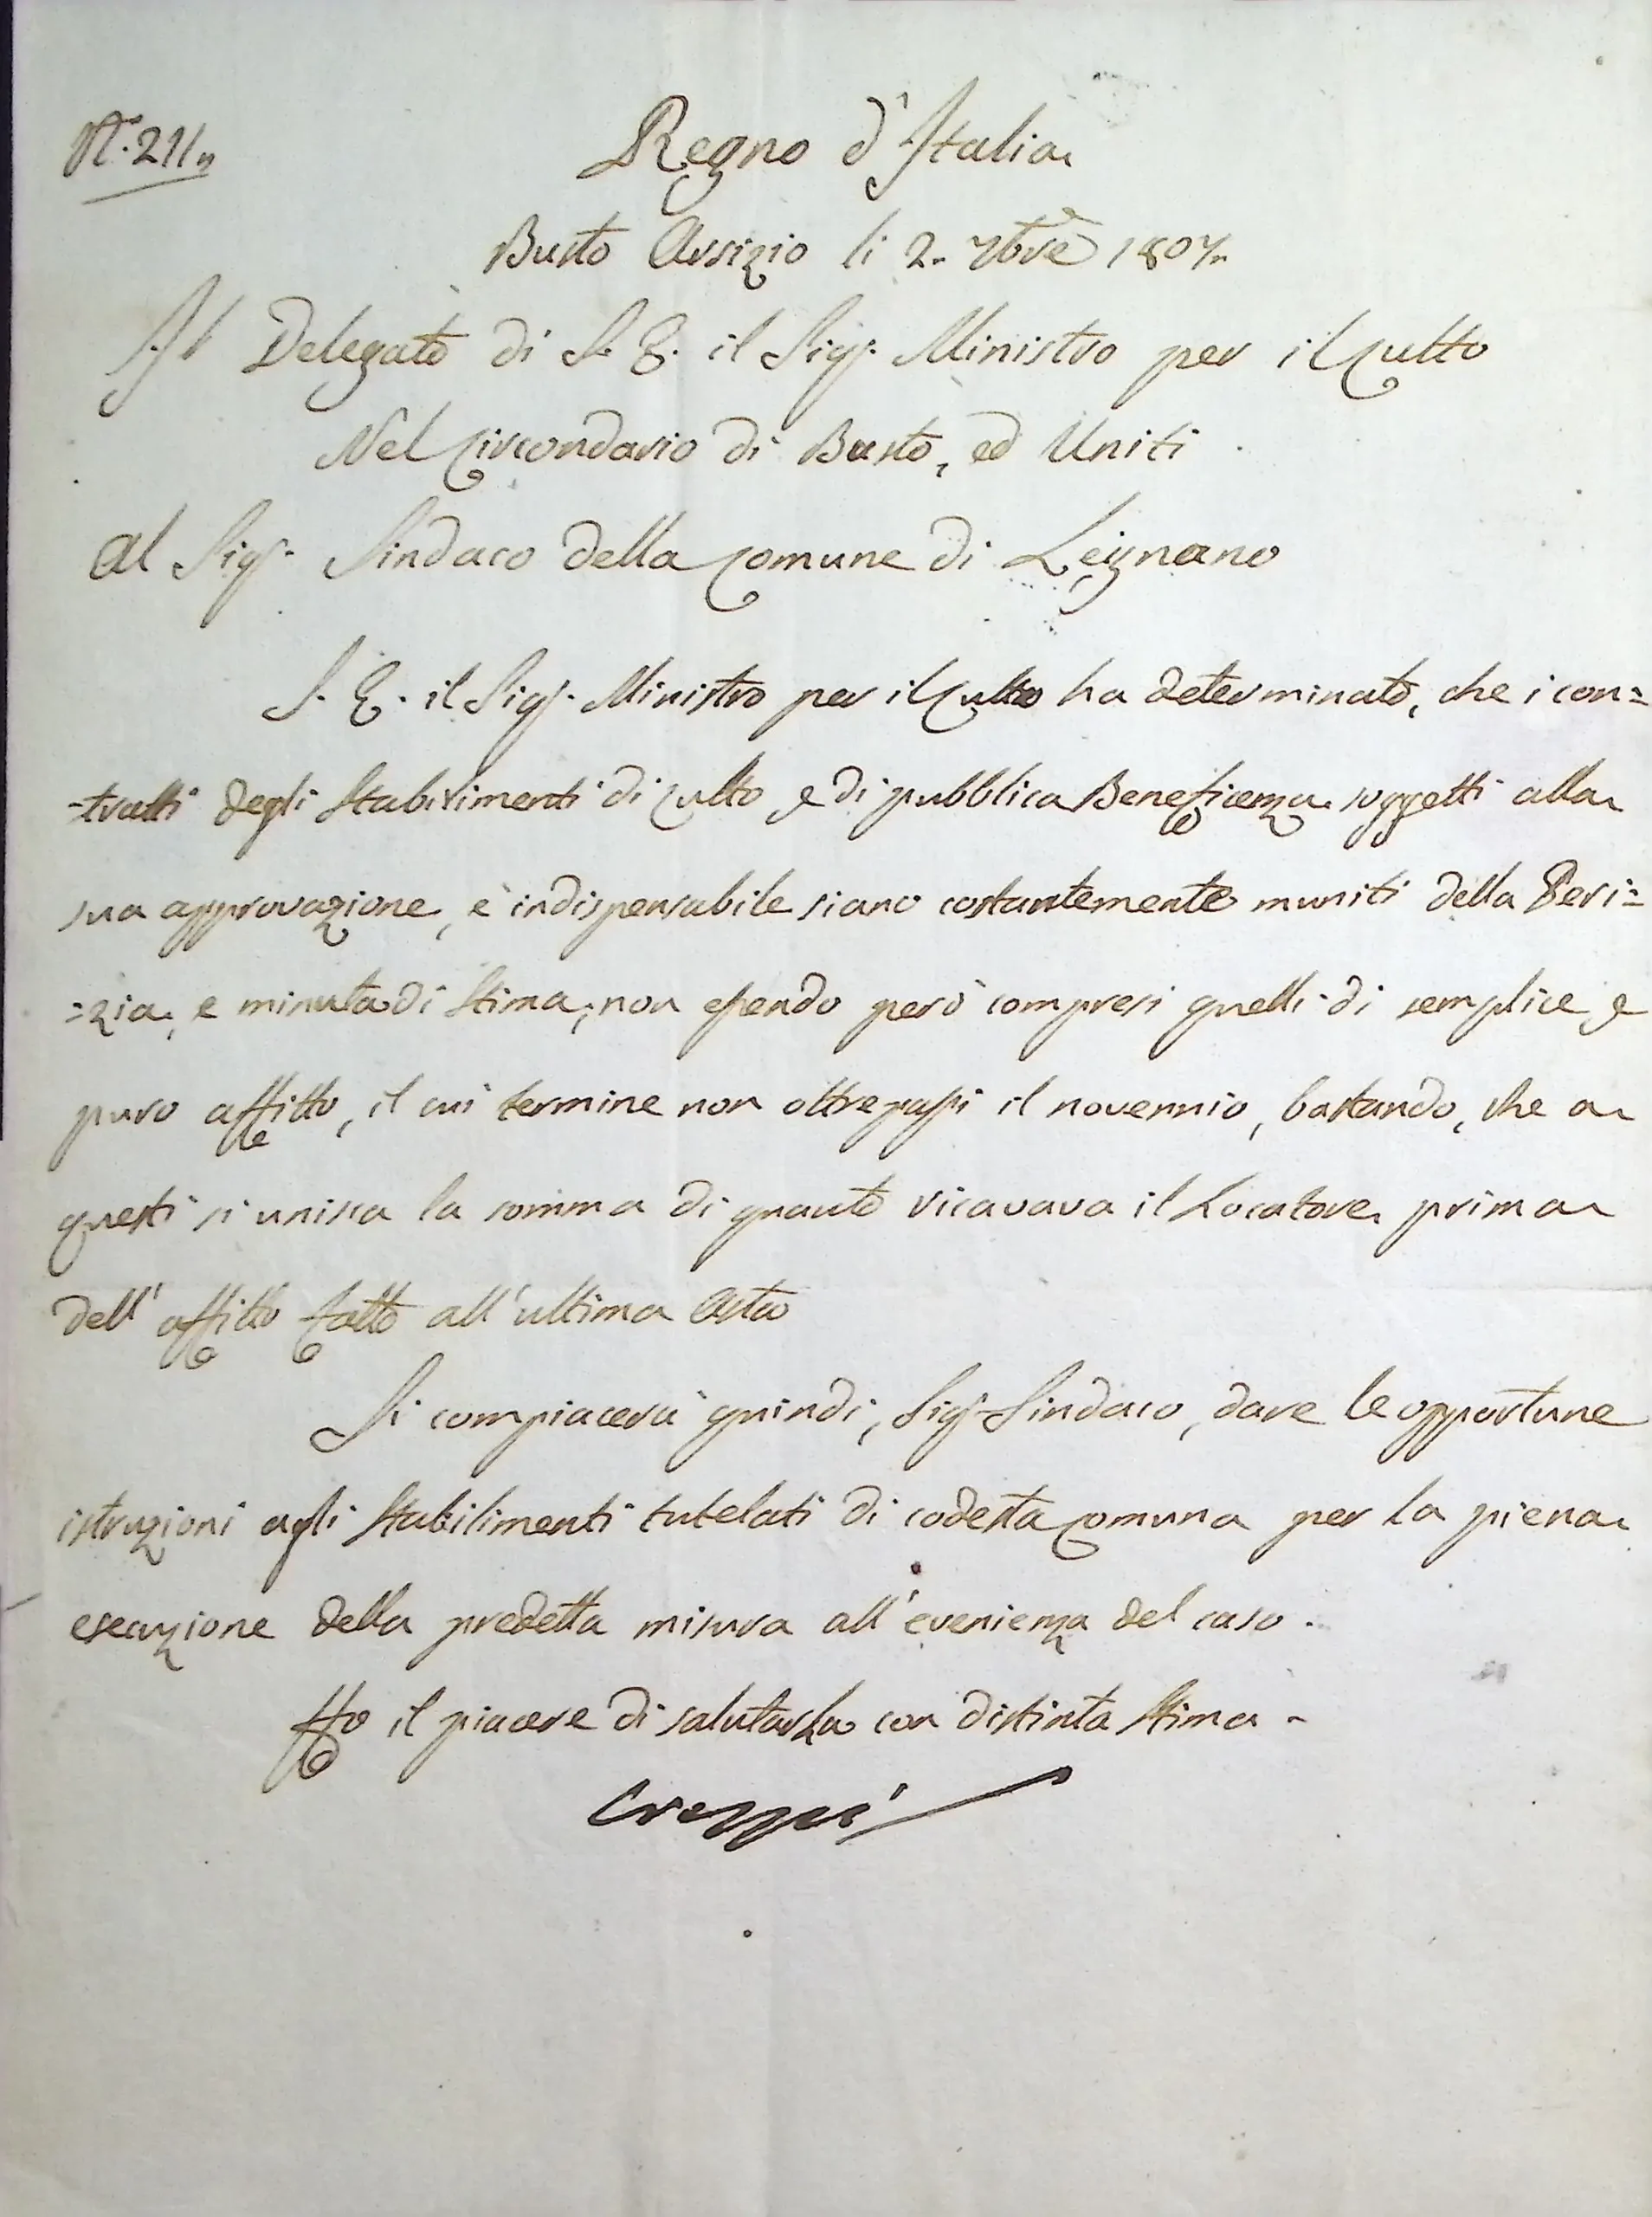 N.° 211.
Regno d'Italia
Busto Arsizio li 2. 7bre 1807.
Il Delegato di S. E. il Sig.r Ministro per il Culto
Nel Circondario di Busto, ed Uniti
Al Sig.r Sindaco della Comune di Leignano
S. E. il Sig.r Ministro per il Culto ha determinato, che i con=
=tratti degli Stabilimenti di Culto e di pubblica Beneficenza soggetti alla
sua approvazione, è indispensabile siano costantemente muniti della Peri=
=zia, e minuta di Stima, non essendo però compresi quelli di semplice e
puro affitto, il cui termine non oltrepassi il novennio, bastando, che a
questi si unisca la somma di quanto ricavava il Locatore prima
dell'affitto fatto all'ultima Asta
Si compiacerà quindi, Sig.r Sindaco, dare le opportune
istruzioni agli Stabilimenti tutelati di codesta Comuna per la piena
esecuzione della predetta misura all'evenienza del caso.
Ho il piacere di salutarla con distinta Stima.
Crespi